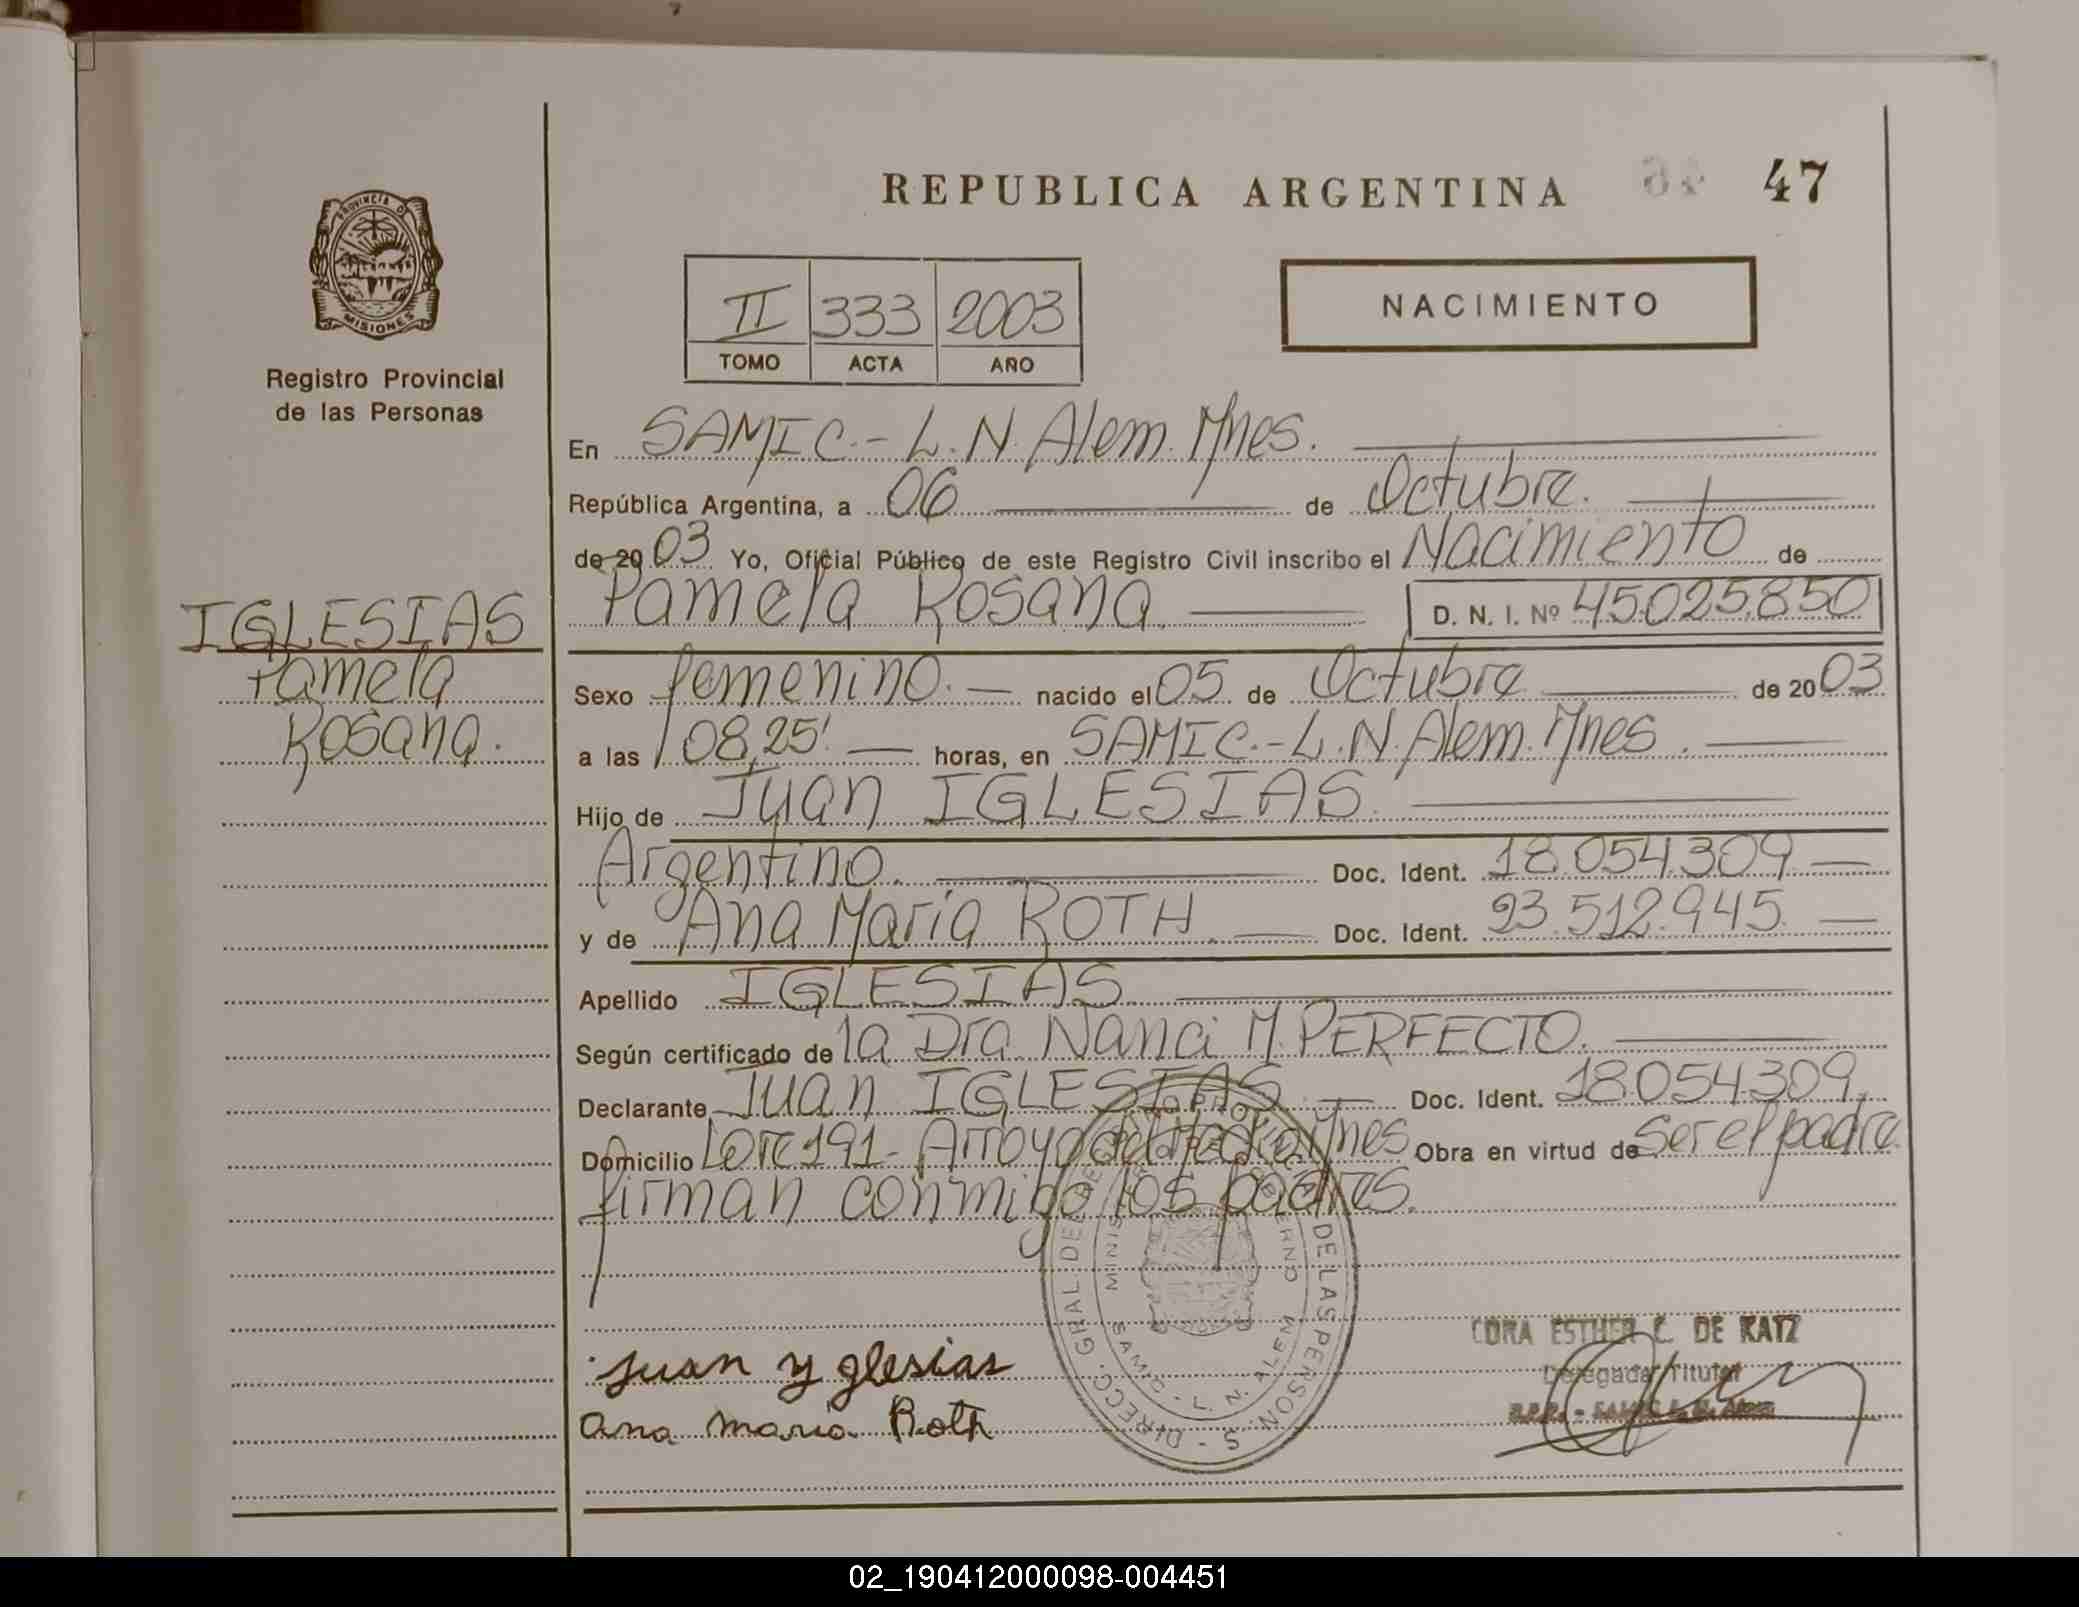 REPUBLICA ARGENTINA 47
PROVINCIA DE
MISIONES
Registro Provincial
de las Personas
II 333 2003
TOMO ACTA AÑO
NACIMIENTO
En SAMIC.- L.N. Alem. Mnes.
República Argentina, a 06 de Octubre.
de 2003 Yo, Oficial Público de este Registro Civil inscribo el Nacimiento de
Pamela Rosana. D. N. I. Nº 45.025.850
IGLESIAS
Pamela
Rosana.
Sexo femenino. nacido el 05 de Octubre de 2003
a las 08,25' horas, en SAMIC.- L.N. Alem. Mnes.
Hijo de Juan IGLESIAS.
Argentino. Doc. Ident. 18.054.309
y de Ana Maria ROTH. Doc. Ident. 93.512.945.
Apellido IGLESIAS.
Según certificado de la Dra. Nanci M. PERFECTO.
Declarante Juan IGLESIAS Doc. Ident. 18.054.309,
Domicilio Lote 191- Arroyo del Medio. Mnes Obra en virtud de Ser el padre.
firman conmigo los padres.
DIRECC. GRAL. DE DE LAS PERSONAS
SAMIC - L. N. ALEM
CORA ESTHER C. DE KATZ
Delegada Titular
R.P.P. - SAMIC L. N. Alem
Juan Yglesias
ana maria Roth
02_190412000098-004451